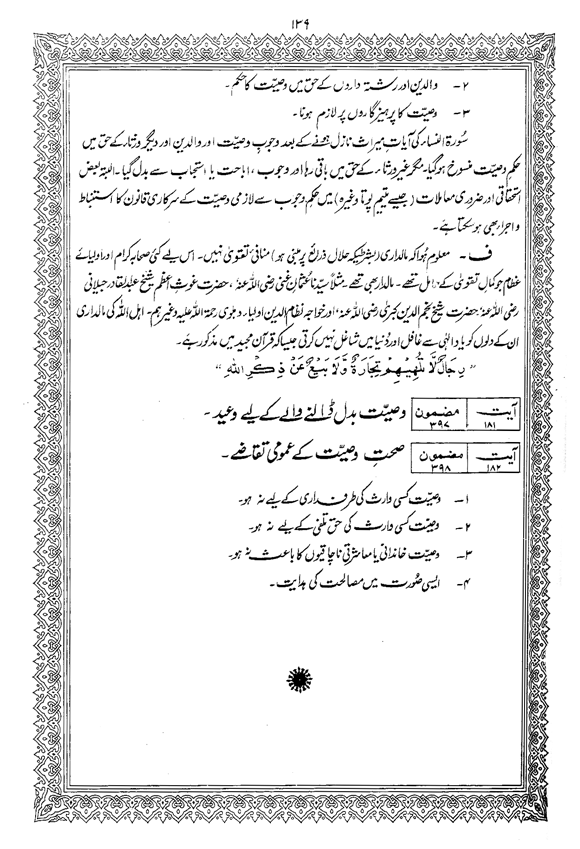 ۱۳۹
۲- والدین اور رشتہ داروں کے حق میں وصیّت کا حکم۔
۳- وصیّت کا پرہیزگاروں پر لازم ہونا۔
سُورۃ النساء کی آیاتِ میراث نازل ہونے کے بعد وجوبِ وصیّت اور والدین اور دیگر ورثاء کے حق میں
حکمِ وصیّت منسوخ ہوگیا۔ مگر غیر ورثاء کے حق میں باقی رہا اور وجوب، اباحت یا استحباب سے بدل گیا۔ البتہ بعض
استحقاقی اور ضروری معاملات (جیسے یتیم پوتا وغیرہ) میں حکمِ وجوب سے لازمی وصیّت کے سرکاری قانون کا استنباط
و اجراء بھی ہوسکتا ہے۔
ف - معلوم ہُوا کہ مالداری (بشرطیکہ حلال ذرائع پر مبنی ہو) منافیٔ تقویٰ نہیں۔ اس لیے کئی صحابہ کرام اور اولیائے
عظام جو کمالِ تقویٰ کے حامل تھے۔ مالدار بھی تھے۔ مثلاً سیّدنا عثمان غنی رضی اللہ عنہٗ، حضرت غوثِ اعظم شیخ عبدالقادر جیلانی
رضی اللہ عنہٗ، حضرت شیخ نجم الدین کبریٰ رضی اللہ عنہٗ اور خواجہ نظام الدین اولیاء دہلوی رحمۃ اللہ علیہ وغیرہم۔ اہل اللہ کی مالداری
ان کے دلوں کو یادِ الٰہی سے غافل اور دُنیا میں شاغل نہیں کرتی جیسا کہ قرآن مجید میں مذکور ہے۔
"رِجَالٌ لَّا تُلْهِيْهِمْ تِجَارَةٌ وَّلَا بَيْعٌ عَنْ ذِكْرِ اللهِ"
آیت ۱۸۱ مضمون ۳۹۷ وصیّت بدل ڈالنے والے کے لیے وعید۔
آیت ۱۸۲ مضمون ۳۹۸ صحتِ وصیّت کے عمومی تقاضے۔
۱- وصیّت کسی وارث کی طرف داری کے لیے نہ ہو۔
۲- وصیّت کسی وارث کی حق تلفی کے لیے نہ ہو۔
۳- وصیّت خاندانی یا معاشرتی ناچاقیوں کا باعث نہ ہو۔
۴- ایسی صُورت میں مصالحت کی ہدایت۔